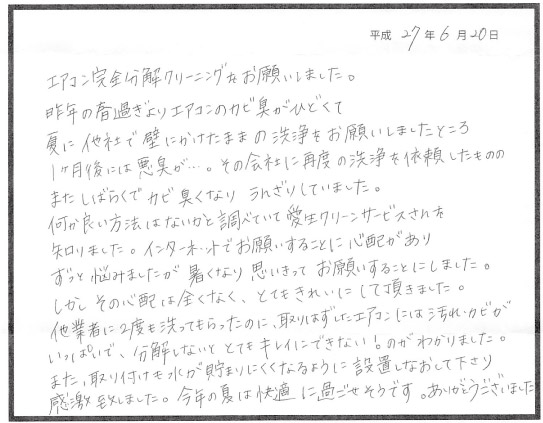 平成 27 年 6 月 20 日
エアコン完全分解クリーニングをお願いしました。
昨年の春過ぎよりエアコンのカビ臭がひどくて
夏に他社で壁にかけたままの洗浄をお願いしましたところ
1ヶ月後には悪臭が…。その会社に再度の洗浄を依頼したものの
またしばらくでカビ臭くなり うんざりしていました。
何か良い方法はないかと調べていて愛生クリーンサービスさんを
知りました。インターネットでお願いすることに心配があり
ずっと悩みましたが暑くなり思いきってお願いすることにしました。
しかしその心配は全くなく、とてもきれいにして頂きました。
他業者に2度も洗ってもらったのに、取りはずしたエアコンには汚れ・カビが
いっぱいで、分解しないととてもキレイにできない!のがわかりました。
また、取り付けも水が貯まりにくくなるように設置しなおして下さり
感激致しました。今年の夏は快適に過ごせそうです。ありがとうございました